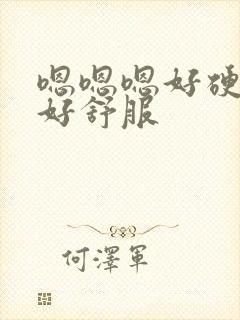 嗯嗯嗯好硬
好舒服
何澤軍